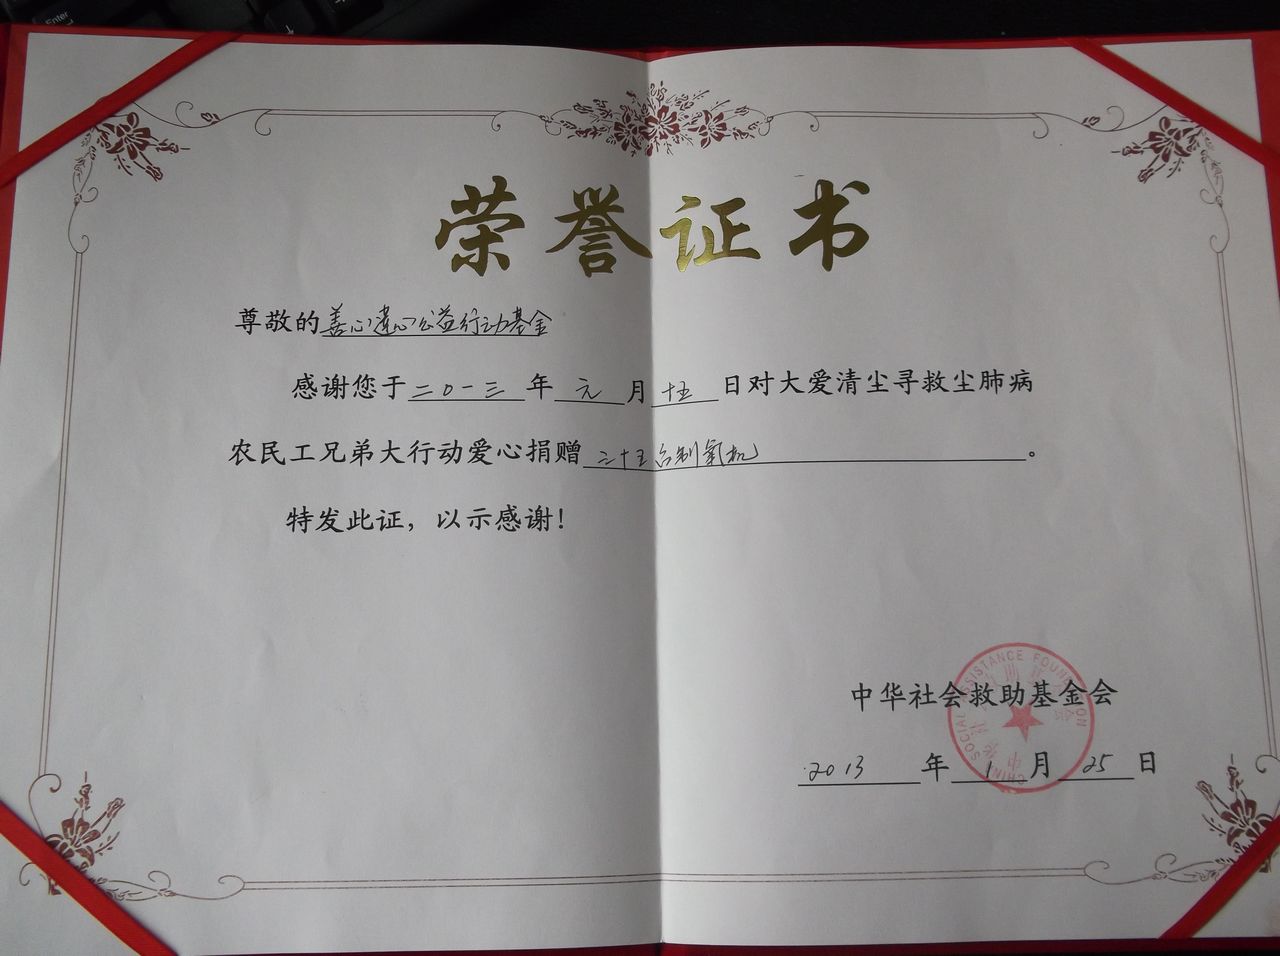 Enter
荣誉证书
尊敬的善心莲心公益行动基金
感谢您于二〇一三年元月十五日对大爱清尘寻救尘肺病
农民工兄弟大行动爱心捐赠二十五台制氧机。
特发此证，以示感谢！
中华社会救助基金会
CHINA SOCIAL ASSISTANCE FOUNDATION
2013年1月25日